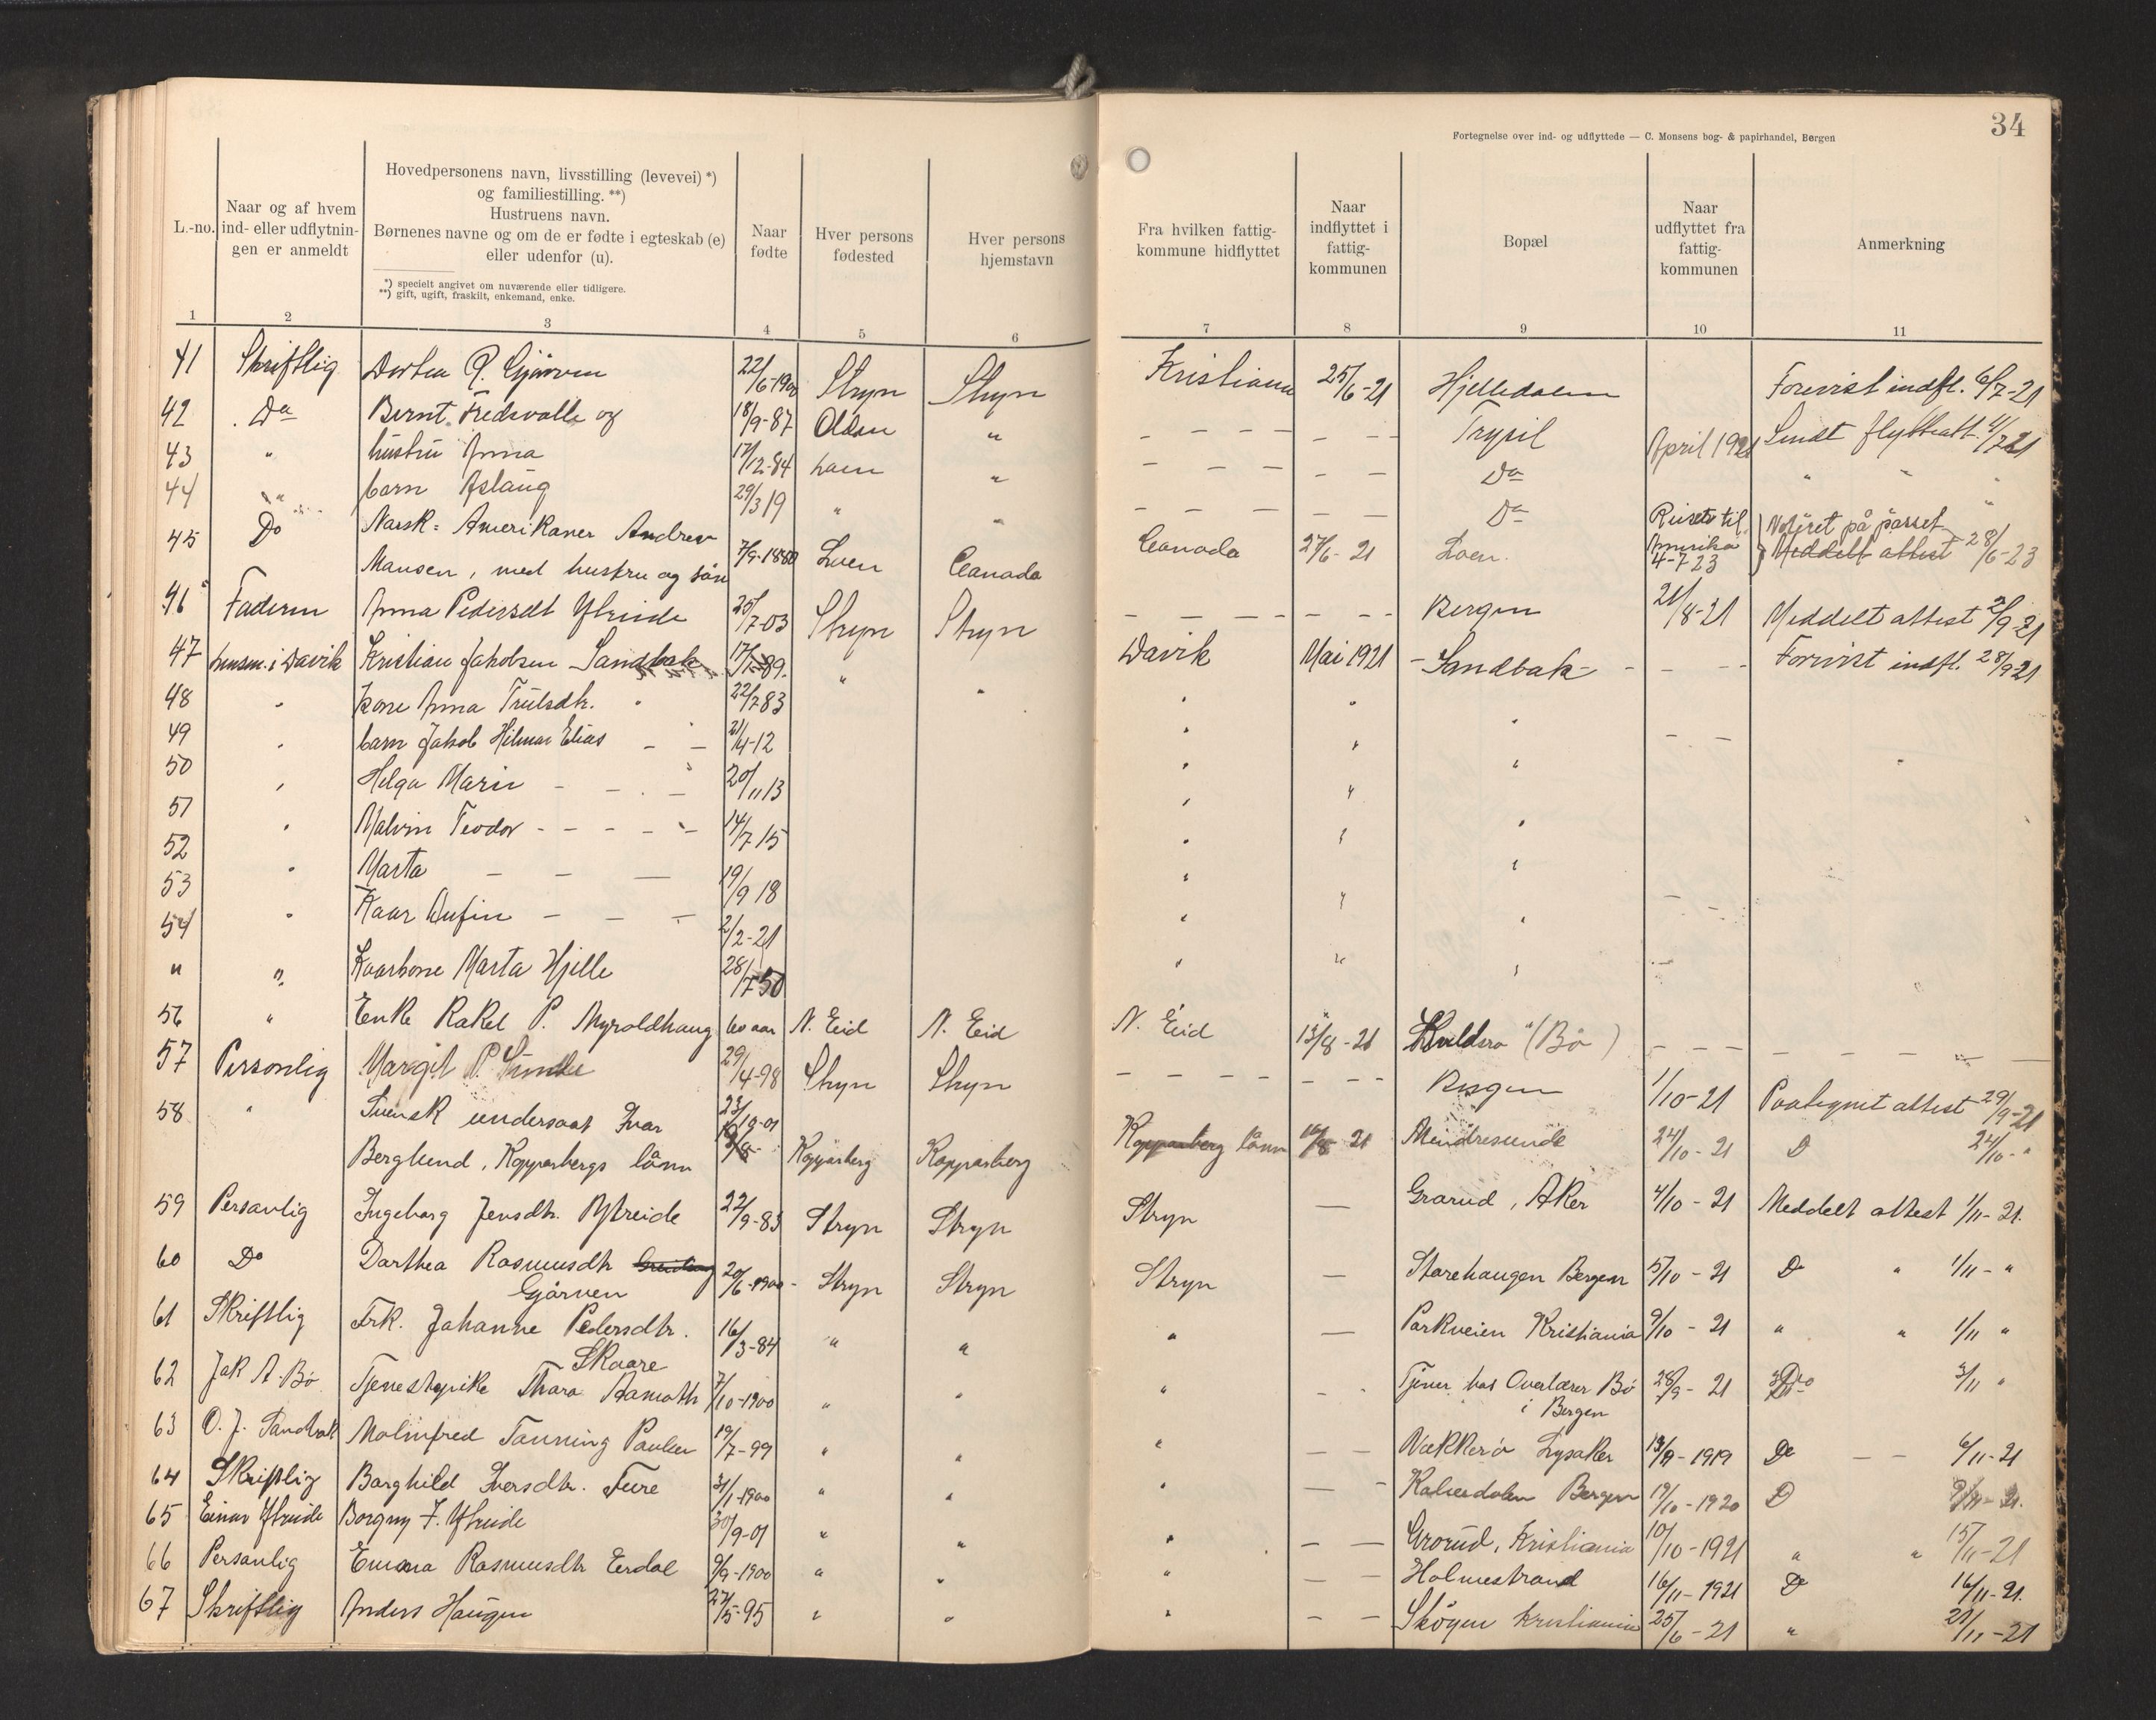 34
Fortegnelse over ind- og udflyttede — C. Monsens bog- & papirhandel, Bergen
L.-no.
Naar og af hvem ind- eller udflytnin- gen er anmeldt
Hovedpersonens navn, livsstilling (levevei) *)
og familiestilling. **)
Hustruens navn.
Børnenes navne og om de er fødte i egteskab (e)
eller udenfor (u).
*) specielt angivet om nuværende eller tidligere.
**) gift, ugift, fraskilt, enkemand, enke.
Naar fødte
Hver persons fødested
Hver persons hjemstavn
Fra hvilken fattig- kommune hidflyttet
Naar indflyttet i fattig- kommunen
Bopæl
Naar udflyttet fra fattig- kommunen
Anmerkning
1 2 3 4 5 6 7 8 9 10 11
41 Skriftlig Dortea R. Gjørven 22/6-1900 Stryn Stryn Kristiania 25/6-21 Hjelledalen Forevist indfl. 6/7-21
42 Do Bernt Fredsvolle og 18/9-87 Olden " - - - - - - - Trysil April 1921 Sendt flytteatt. 4/7 21
43 " hustru Anna 17/12-84 Loen " - - - - - - - Do " " "
44 " barn Aslaug 29/3 19 " " - - - - - - - Do "
45 Do Norsk-Amerikaner Andrew 7/9-1880 Loen Canada Canada 27/6-21 Loen. Reiste til Noteret på passet
Monsen, med hustru og søn Amerika 4-7-23 Meddelt attest 28/6-23
46 Faderen Anna Pedersdt Ytreide 25/7-03 Stryn Stryn - - - - - - Bergen 21/8-21 Meddelt attest 2/9-21
47 lensm. i Davik Kristian Jakobsen Sandbak 17/1-89. " " Davik Mai 1921 - Sandbak - - - - Forevist indfl. 28/9 21
48 " kone Anna Trulsdtr. " 22/7 83 " " "
49 " barn Jakob Hilmar Elias - - 21/4-12 " " " - -
50 " Helga Marie - - - 20/11 13 " " "
51 " Malvin Teodor - - - - - 14/7 15 " " "
52 " Marta - - - 19/9 18 " " "
53 " Kaar Aufin - - - 2/2-21 " " " - -
54
" " Kaarkone Marta Hjelle 28/7 50 " " "
56 " Enke Rakel P. Myroldhaug 60 aar N. Eid N. Eid N. Eid 13/8-21 (Bø) - - - - - - - -
57 Personlig Margit P. Sunde 29/4-98 Stryn Stryn - - - - - - - Bergen 1/10-21 Paategnet attest 29/9-21
58 " Svensk undersaat Ivar 23/10-01
Berglund, Kopparbergs länn Kopparberg Kopparberg Kopparberg länn 16/8 21 Mindresunde 24/10-21 D 24/10-"
59 Personlig Ingeborg Jensdtr. Ytreide 22/9-83 Stryn Stryn Stryn — Grorud, Aker 4/10-21 Meddelt attest 1/11-21.
60 Do Dorthea Rasmusdtr 20/6-1900 - Stryn Stryn Stryn — Storehaugen Bergen 5/10-21 Do " 1/11-"
Gjørven
61 Skriftlig Frk. Johanne Pedersdtr. 16/3-84 " " " — Parkveien Kristiania 9/10-21 " " 1/11 "
Skaare
62 Jak A. Bø Tjenestepike Thora Aamoth 7/10-1900 " " " - - Tjener hos Overlærer Bø 28/9-21 Do 3/11 "
i Bergen
63 O. J. Sandbak Malmfred Tonning Paulsen 19/7-99 " " " - - Vækkerø Lysaker 13/9-1919 Do - - 6/11-21
64 Skriftlig Borghild Iversdtr. Fure 31/1-1900 " " " — - Kalvedalen Bergen 19/10-1920 D 9/11-21.
65 Einar Ytreide Borgny J. Ytreide 30/9-01 " " " - - Grorud, Kristiania 10/10-1921 " " 15/11-21
66 Personlig Emma Rasmusdtr Erdal 9/9-1900 " " " - - Holmestrand 16/11-1921 Do 16/11-21.
67 Skriftlig Anders Haugen 27/5-95 " " " - - Skøyen Kristiania 25/6-21 " 21/11-21